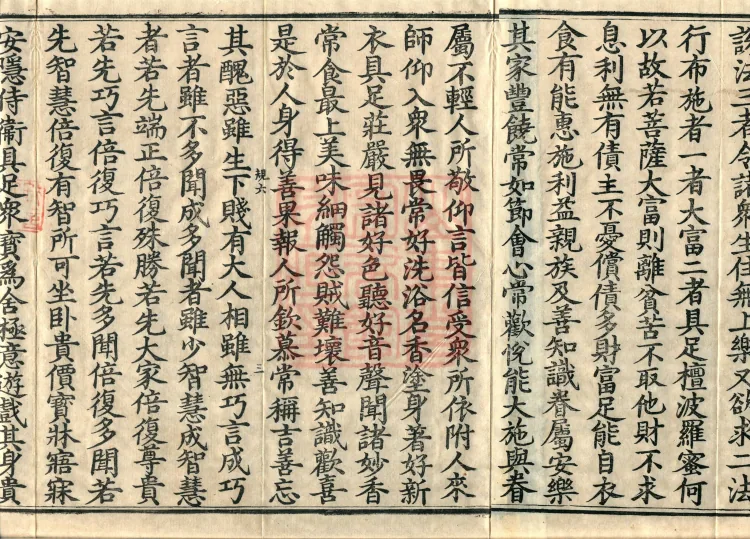 說法三者令諸衆生住無上樂又欲求二法
行布施者一者大富二者具足檀波羅蜜何
以故若菩薩大富則離貧苦不取他財不求
息利無有債主不憂償債多財富足能自衣
食有能惠施利益親族及善知識眷屬安樂
其家豐饒常如節會心常歡悅能大施與眷
屬不輕人所敬仰言皆信受衆所依附人來
師仰入衆無畏常好洗浴名香塗身著好新
衣具足莊嚴見諸好色聽好音聲聞諸妙香
常食最上美味細觸怨賊難壞善知識歡喜
是於人身得善果報人所欽慕常稱吉善忘
規六 三
其醜惡雖生下賤有大人相雖無巧言成巧
言者雖不多聞成多聞者雖少智慧成智慧
者若先端正倍復殊勝若先大家倍復尊貴
若先巧言倍復巧言若先多聞倍復多聞若
先智慧倍復有智所可坐卧貴價寶牀寤寐
安隱侍衛具足衆寶爲舍極意遊戲其身貴